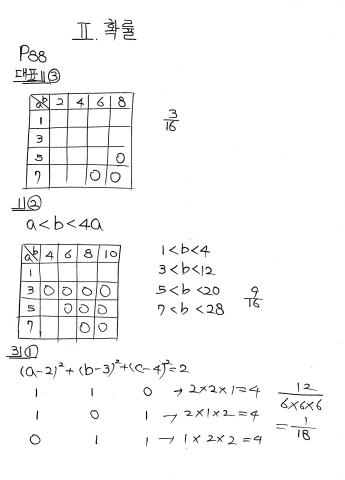 II. 확률
P88
대표 11 ③
a b 2 4 6 8
1
3
5 O
7 O O
3/16
11 ②
a<b<4a
a b 4 6 8 10
1
3 O O O O
5 O O O
7 O O
1<b<4
3<b<12
5<b<20
7<b<28
9/16
31 ①
(a-2)²+(b-3)²+(c-4)²=2
1 1 0 → 2×2×1=4
1 0 1 → 2×1×2=4
0 1 1 → 1×2×2=4
12/6×6×6
=1/18